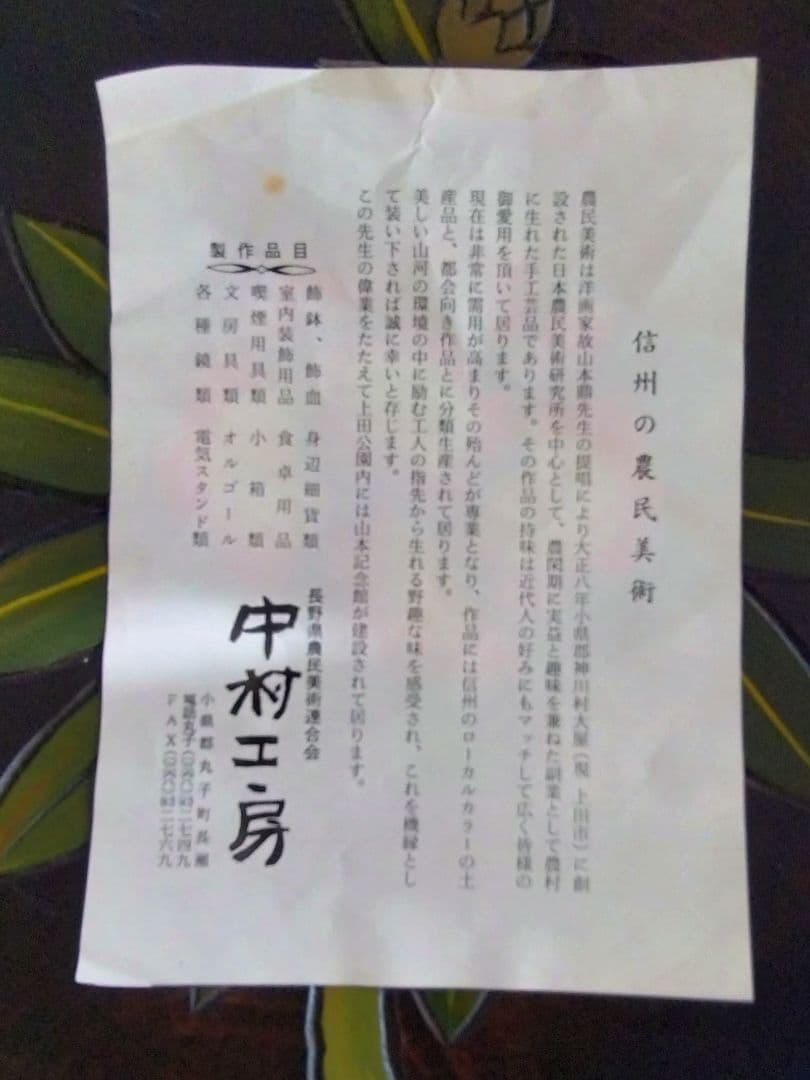 信州の農民美術
農民美術は洋画家故山本鼎先生の提唱により大正八年小県郡神川村大屋(現 上田市)に創
設された日本農民美術研究所を中心として、農閑期に実益と趣味を兼ねた副業として農村
に生れた手工芸品であります。その作品の持味は近代人の好みにもマッチして広く皆様の
御愛用を頂いて居ります。
現在は非常に需用が高まりその殆んどが専業となり、作品には信州のローカルカラーの土
産品と、都会向き作品とに分類生産されて居ります。
美しい山河の環境の中に励む工人の指先から生れる野趣な味を感受され、これを機縁とし
て装い下されば誠に幸いと存じます。
この先生の偉業をたたえて上田公園内には山本記念館が建設されて居ります。
製作品目
飾鉢、飾皿 身辺細貨類
室内装飾用品 食卓用品
喫煙用具類 小箱類
文房具類 オルゴール
各種鏡類 電気スタンド類
長野県農民美術連合会
中村工房
小県郡丸子町長瀬
電話丸子 二七四九
FAX 二七六九